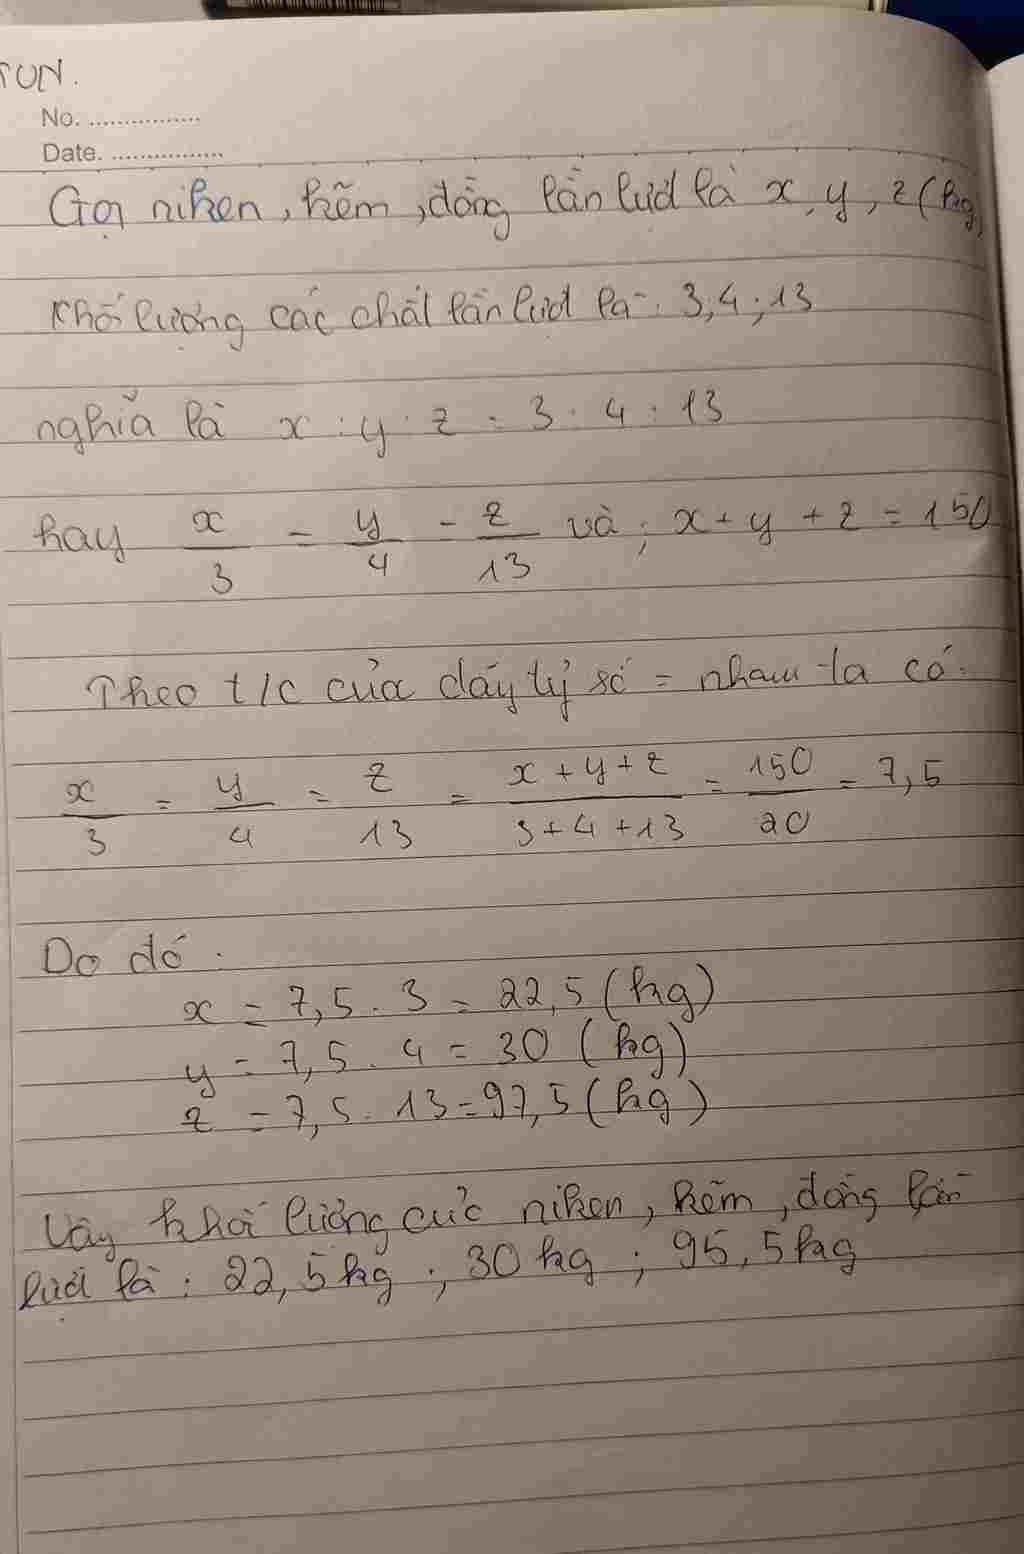 TON.
No. ................
Date. ................
Gọi niken, kẽm, đồng lần lượt là x, y, z (kg)
Khối lượng các chất lần lượt là: 3, 4; 13
nghĩa là x : y : z = 3 : 4 : 13
hay x/3 = y/4 = z/13 và; x + y + z = 150
Theo t/c của dãy tỷ số = nhau ta có.
x/3 = y/4 = z/13 = x + y + z/3 + 4 + 13 = 150/20 = 7,5
Do đó.
x = 7,5 . 3 = 22,5 (kg)
y = 7,5 . 4 = 30 (kg)
z = 7,5 . 13 = 97,5 (kg)
Vậy khối lượng của niken, kẽm, đồng lần
lượt là: 22,5kg ; 30 kg ; 95,5kg